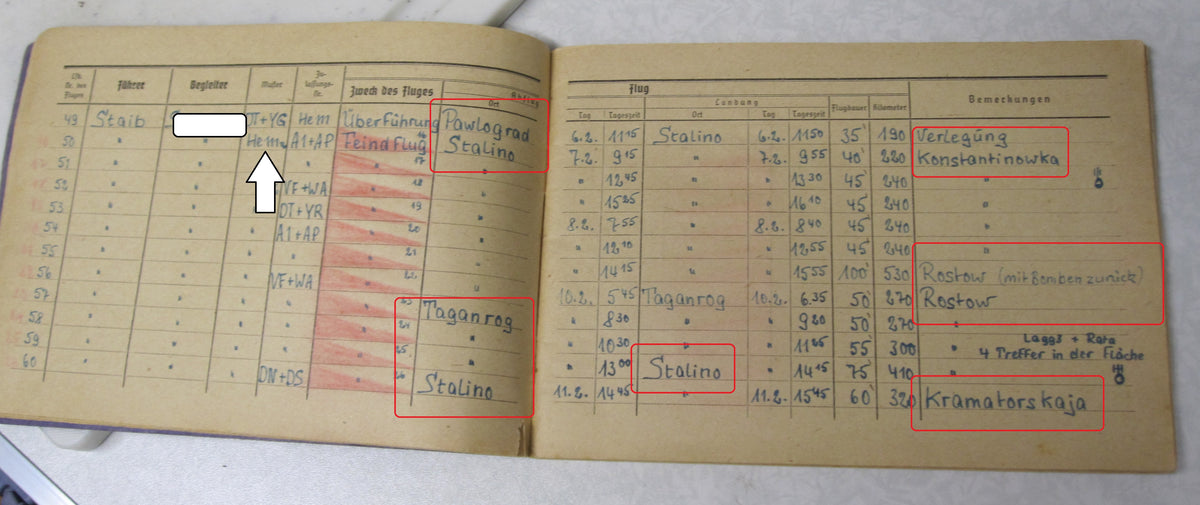 Lfde. Nr. des Fluges Führer Begleiter Muster Zu- lassungs- Nr. Zweck des Fluges Abflug Ort
Flug
Landung
Tag Tageszeit Ort Tag Tageszeit Flugdauer Kilometer Bemerkungen
49 Staib DT+YG Hem Überführung Pawlograd 6.2. 11 15 Stalino 6.2. 11 50 35' 190 Verlegung
50 " " Hem A1+AP Feindflug 16 Stalino 7.2. 9 15 " 7.2. 9 55 40' 220 Konstantinowka
51 " " " 17 " " 12 45 " " 13 30 45' 240 "
52 " " " VF+WA " 18 " " 15 25 " " 16 10 45' 240 "
53 " " " DT+YR " 19 " 8.2. 7 55 " 8.2. 8 40 45' 240 "
54 " " " A1+AP " 20 " " 12 10 " " 12 55 45' 240 "
55 " " " " 21 " " 14 15 " " 15 55 100' 530 Rostow (mit Bomben zurück)
56 " " VF+WA " 22 " 10.2. 5 45 Taganrog 10.2. 6.35 50' 270 Rostow
57 " " " " 23 Taganrog " 8 30 " " 9 20 50' 270 "
58 " " " " 24 " " 10 30 " " 11 25 55' 300 " Lagg3 + Rata
59 " " " " 25 " " 13 00 Stalino " 14 15 75' 410 " 4 Treffer in der Fläche
60 " " " DN+DS " 26 Stalino 11.2. 14 45 " 11.2. 15 45 60' 320 Kramatorskaja